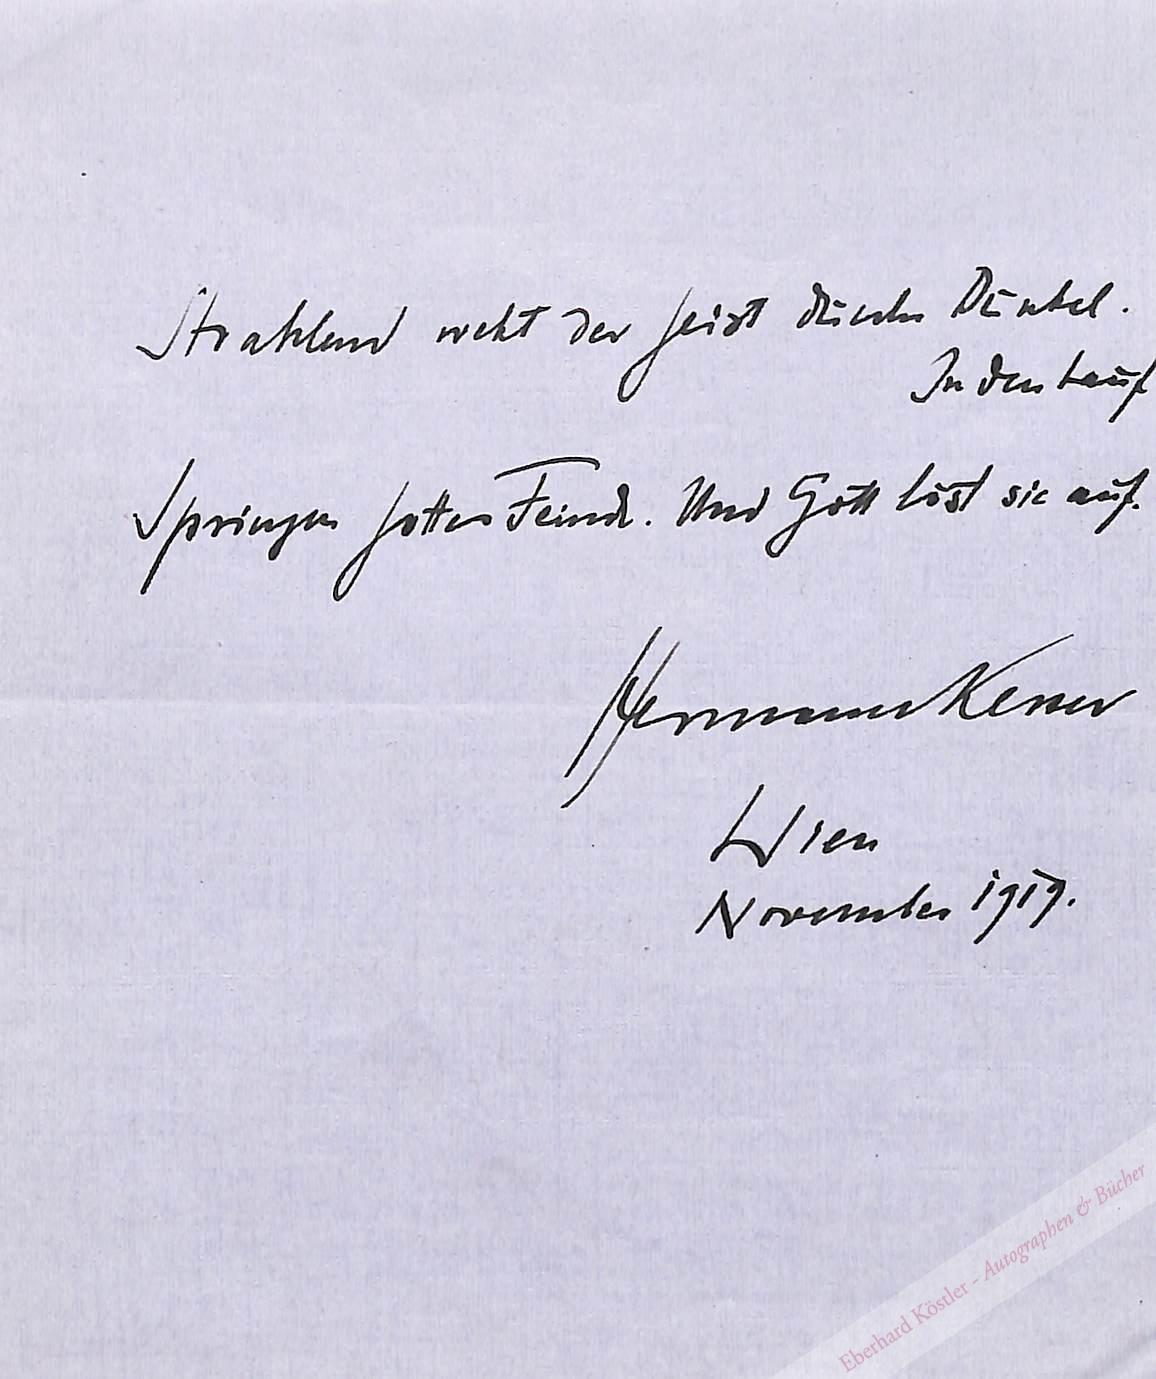 Strahlend weht der Geist durchs Dunkel.
In den Lauf
Springen Gottes Feinde. Und Gott löst sie auf.
Hermann Kesser
Wien
November 1919.
Eberhard Köstler - Autographen & Bücher